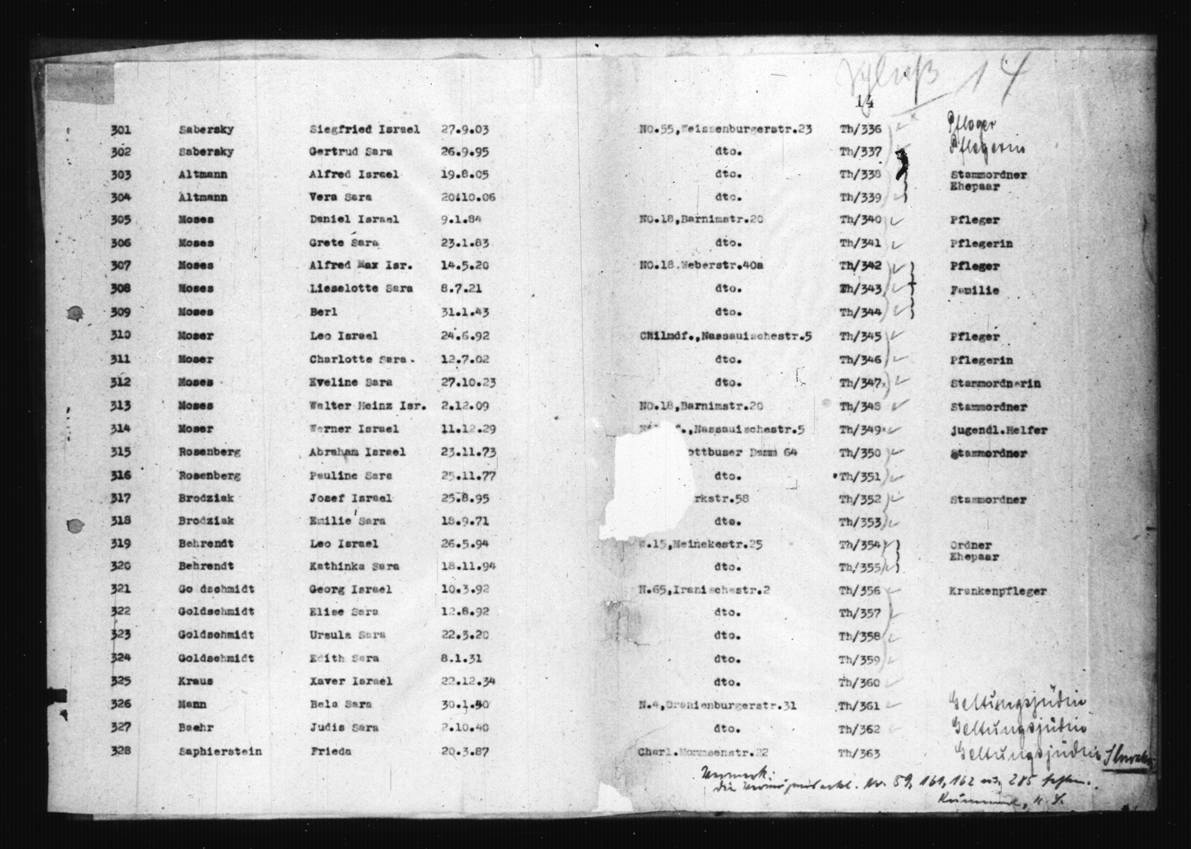 14
14
301 Sabersky Siegfried Israel 27.9.03 NO.55,Weissenburgerstr.23 Th/336 Pfleger
302 Sabersky Gertrud Sara 26.9.95 dto. Th/337 Pflegerin
303 Altmann Alfred Israel 19.8.05 dto. Th/338 Stammordner
Ehepaar
304 Altmann Vera Sara 20.10.06 dto. Th/339
305 Moses Daniel Israel 9.1.84 NO.18,Barnimstr.20 Th/340 Pfleger
306 Moses Grete Sara 23.1.83 dto. Th/341 Pflegerin
307 Moses Alfred Max Isr. 14.5.20 NO.18.Weberstr.40a Th/342 Pfleger
308 Moses Lieselotte Sara 8.7.21 dto. Th/343 Familie
309 Moses Berl 31.1.43 dto. Th/344
310 Moser Leo Israel 24.6.92 Nassauischestr.5 Th/345 Pfleger
311 Moser Charlotte Sara. 12.7.02 dto. Th/346 Pflegerin
312 Moses Eveline Sara 27.10.23 dto. Th/347 Stammordnerin
313 Moses Walter Heinz Isr. 2.12.09 NO.18,Barnimstr.20 Th/348 Stammordner
314 Moser Werner Israel 11.12.29 .,Nassauischestr.5 Th/349 jugendl.Helfer
315 Rosenberg Abraham Israel 23.11.73 ottbuser Damm 64 Th/350 Stammordner
316 Rosenberg Pauline Sara 25.11.77 dto. Th/351
317 Brodziak Josef Israel 25.8.95 rkstr.58 Th/352 Stammordner
318 Brodziak Emilie Sara 18.9.71 dto. Th/353
319 Behrendt Leo Israel 26.5.94 W.15,Meinekestr.25 Th/354 Ordner
Ehepaar
320 Behrendt Kathinka Sara 18.11.94 dto. Th/355
321 Go dschmidt Georg Israel 10.3.92 N.65,Iranischestr.2 Th/356 Krankenpfleger
322 Goldschmidt Elise Sara 12.8.92 dto. Th/357
323 Goldschmidt Ursula Sara 22.3.20 dto. Th/358
324 Goldschmidt Edith Sara 8.1.31 dto. Th/359
325 Kraus Xaver Israel 22.12.34 dto. Th/360
326 Mann Bela Sara 30.1.40 N.4,Oranienburgerstr.31 Th/361 Geltungsjüdin
327 Baehr Judis Sara 2.10.40 dto. Th/362 Geltungsjüdin
328 Saphierstein Frieda 20.3.87 Charl.Mommsenstr.22 Th/363 Geltungsjüdin
Vermerk:
Die Vermögenserkl. Nr. 59, 161, 162 u. 285 fehlen.